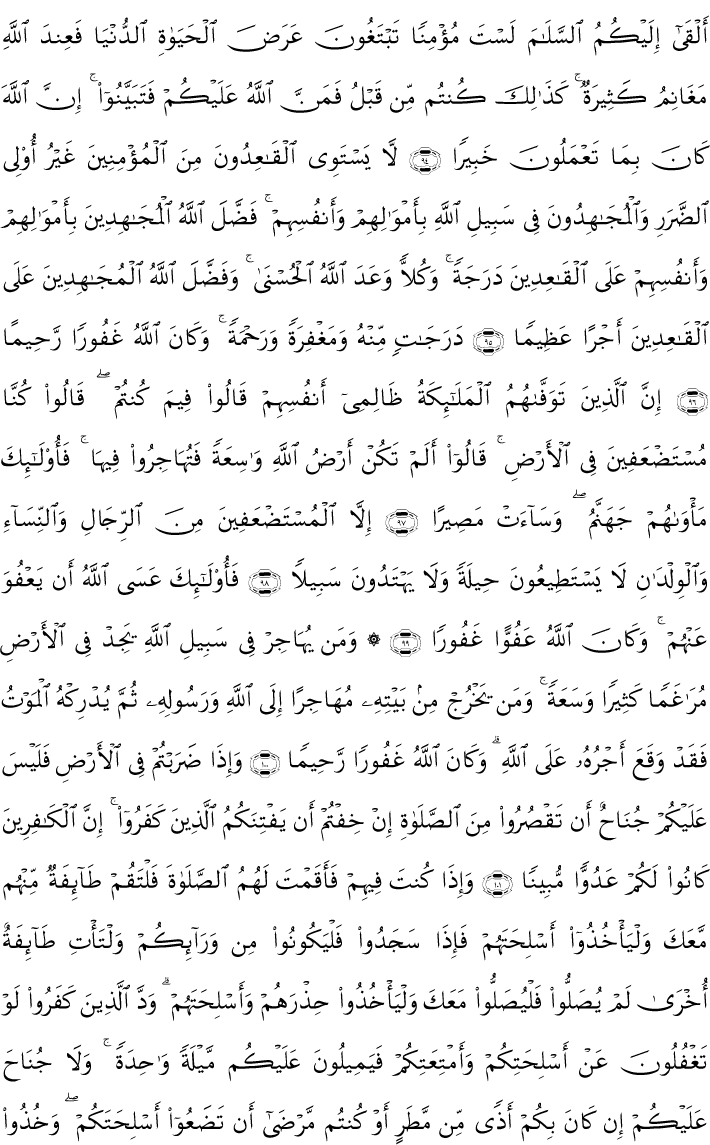 أَلْقَىٰٓ إِلَيْكُمُ ٱلسَّلَـٰمَ لَسْتَ مُؤْمِنًا تَبْتَغُونَ عَرَضَ ٱلْحَيَوٰةِ ٱلدُّنْيَا فَعِندَ ٱللَّهِ
مَغَانِمُ كَثِيرَةٌ ۚ كَذَٰلِكَ كُنتُم مِّن قَبْلُ فَمَنَّ ٱللَّهُ عَلَيْكُمْ فَتَبَيَّنُوٓا۟ ۚ إِنَّ ٱللَّهَ
كَانَ بِمَا تَعْمَلُونَ خَبِيرًا ٩٤ لَّا يَسْتَوِى ٱلْقَـٰعِدُونَ مِنَ ٱلْمُؤْمِنِينَ غَيْرُ أُو۟لِى
ٱلضَّرَرِ وَٱلْمُجَـٰهِدُونَ فِى سَبِيلِ ٱللَّهِ بِأَمْوَٰلِهِمْ وَأَنفُسِهِمْ ۚ فَضَّلَ ٱللَّهُ ٱلْمُجَـٰهِدِينَ بِأَمْوَٰلِهِمْ
وَأَنفُسِهِمْ عَلَى ٱلْقَـٰعِدِينَ دَرَجَةً ۚ وَكُلًّا وَعَدَ ٱللَّهُ ٱلْحُسْنَىٰ ۚ وَفَضَّلَ ٱللَّهُ ٱلْمُجَـٰهِدِينَ عَلَى
ٱلْقَـٰعِدِينَ أَجْرًا عَظِيمًا ٩٥ دَرَجَـٰتٍ مِّنْهُ وَمَغْفِرَةً وَرَحْمَةً ۚ وَكَانَ ٱللَّهُ غَفُورًا رَّحِيمًا
٩٦ إِنَّ ٱلَّذِينَ تَوَفَّىٰهُمُ ٱلْمَلَـٰٓئِكَةُ ظَالِمِىٓ أَنفُسِهِمْ قَالُوا۟ فِيمَ كُنتُمْ ۖ قَالُوا۟ كُنَّا
مُسْتَضْعَفِينَ فِى ٱلْأَرْضِ ۚ قَالُوٓا۟ أَلَمْ تَكُنْ أَرْضُ ٱللَّهِ وَٰسِعَةً فَتُهَاجِرُوا۟ فِيهَا ۚ فَأُو۟لَـٰٓئِكَ
مَأْوَىٰهُمْ جَهَنَّمُ ۖ وَسَآءَتْ مَصِيرًا ٩٧ إِلَّا ٱلْمُسْتَضْعَفِينَ مِنَ ٱلرِّجَالِ وَٱلنِّسَآءِ
وَٱلْوِلْدَٰنِ لَا يَسْتَطِيعُونَ حِيلَةً وَلَا يَهْتَدُونَ سَبِيلًا ٩٨ فَأُو۟لَـٰٓئِكَ عَسَى ٱللَّهُ أَن يَعْفُوَ
عَنْهُمْ ۚ وَكَانَ ٱللَّهُ عَفُوًّا غَفُورًا ٩٩ ۞ وَمَن يُهَاجِرْ فِى سَبِيلِ ٱللَّهِ يَجِدْ فِى ٱلْأَرْضِ
مُرَٰغَمًا كَثِيرًا وَسَعَةً ۚ وَمَن يَخْرُجْ مِنۢ بَيْتِهِۦ مُهَاجِرًا إِلَى ٱللَّهِ وَرَسُولِهِۦ ثُمَّ يُدْرِكْهُ ٱلْمَوْتُ
فَقَدْ وَقَعَ أَجْرُهُۥ عَلَى ٱللَّهِ ۗ وَكَانَ ٱللَّهُ غَفُورًا رَّحِيمًا ١٠٠ وَإِذَا ضَرَبْتُمْ فِى ٱلْأَرْضِ فَلَيْسَ
عَلَيْكُمْ جُنَاحٌ أَن تَقْصُرُوا۟ مِنَ ٱلصَّلَوٰةِ إِنْ خِفْتُمْ أَن يَفْتِنَكُمُ ٱلَّذِينَ كَفَرُوٓا۟ ۚ إِنَّ ٱلْكَـٰفِرِينَ
كَانُوا۟ لَكُمْ عَدُوًّا مُّبِينًا ١٠١ وَإِذَا كُنتَ فِيهِمْ فَأَقَمْتَ لَهُمُ ٱلصَّلَوٰةَ فَلْتَقُمْ طَآئِفَةٌ مِّنْهُم
مَّعَكَ وَلْيَأْخُذُوٓا۟ أَسْلِحَتَهُمْ فَإِذَا سَجَدُوا۟ فَلْيَكُونُوا۟ مِن وَرَآئِكُمْ وَلْتَأْتِ طَآئِفَةٌ
أُخْرَىٰ لَمْ يُصَلُّوا۟ فَلْيُصَلُّوا۟ مَعَكَ وَلْيَأْخُذُوا۟ حِذْرَهُمْ وَأَسْلِحَتَهُمْ ۗ وَدَّ ٱلَّذِينَ كَفَرُوا۟ لَوْ
تَغْفُلُونَ عَنْ أَسْلِحَتِكُمْ وَأَمْتِعَتِكُمْ فَيَمِيلُونَ عَلَيْكُم مَّيْلَةً وَٰحِدَةً ۚ وَلَا جُنَاحَ
عَلَيْكُمْ إِن كَانَ بِكُمْ أَذًى مِّن مَّطَرٍ أَوْ كُنتُم مَّرْضَىٰٓ أَن تَضَعُوٓا۟ أَسْلِحَتَكُمْ ۖ وَخُذُوا۟